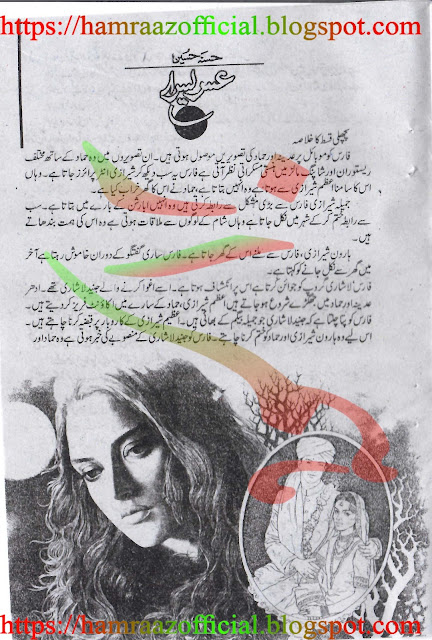 https://hamraazofficial.blogspot.com
حسنہ حسین
عمر یسرا
پچھلی قسط کا خلاصہ
فارس کو موبائل پر عدینہ اور حماد کی تصویریں موصول ہوتی ہیں۔ ان تصویروں میں وہ حماد کے ساتھ مختلف
ریستوران اور شاپنگ مالز میں ہنستی مسکراتی نظر آتی ہے۔ فارس یہ سب دیکھ کر شیرازی انٹرپرائزز جاتا ہے۔ وہاں
اس کا سامنا اعظم شیرازی سے ہوتا ہے وہ انہیں بتاتا ہے، حماد نے اس کا گھر خراب کیا ہے۔
جمیلہ شیرازی فارس سے بڑی مشکل سے رابطہ کرتی ہیں وہ انہیں ابارشن کے بارے میں بتاتا ہے۔ سب
سے رابطہ ختم کر کے شہر میں نکل جاتا ہے وہاں شام کے لوگوں سے ملاقات ہوتی ہے وہ اس کی ہمت بندھاتے
ہیں۔
ہارون شیرازی، فارس سے ملنے اس کے گھر جاتا ہے۔ فارس ساری گفتگو کے دوران خاموش رہتا ہے آخر
میں گھر سے نکل جانے کو کہتا ہے۔
فارس لاشاری گروپ کو جوائن کرتا ہے اس پر انکشاف ہوتا ہے۔ اسے اغوا کرنے والے جنید لاشاری تھے۔ ادھر
عدینہ اور حماد میں جھگڑے شروع ہو جاتے ہیں اعظم شیرازی، حماد کے سارے اکاؤنٹ فریز کر دیتے ہیں۔
فارس کو پتا چلتا ہے کہ جنید لاشاری جو جمیلہ بیگم کے بھائی ہیں۔ اعظم شیرازی کے کاروبار پر قبضہ کرنا چاہتے ہیں۔
اس لیے وہ ہارون شیرازی اور حماد کو ختم کرنا چاہتے۔ فارس کو جنید لاشاری کے منصوبے کی خبر ہوتی ہے وہ حماد اور
https://hamraazofficial.blogspot.com